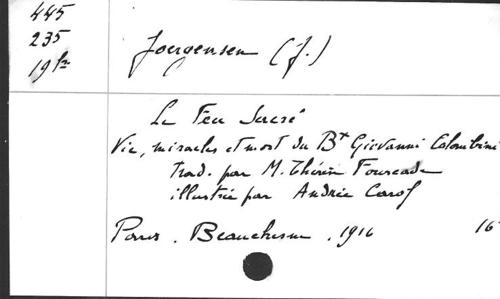 445
235
19
Joergensen (J.)
Le Feu Sacré
Vie, miracles et mort du Bx Giovanni Colombini
trad. par M. Thérèse Fourcade
illustrée par Andrée Carof
Paris. Beauchesne. 1916 16°